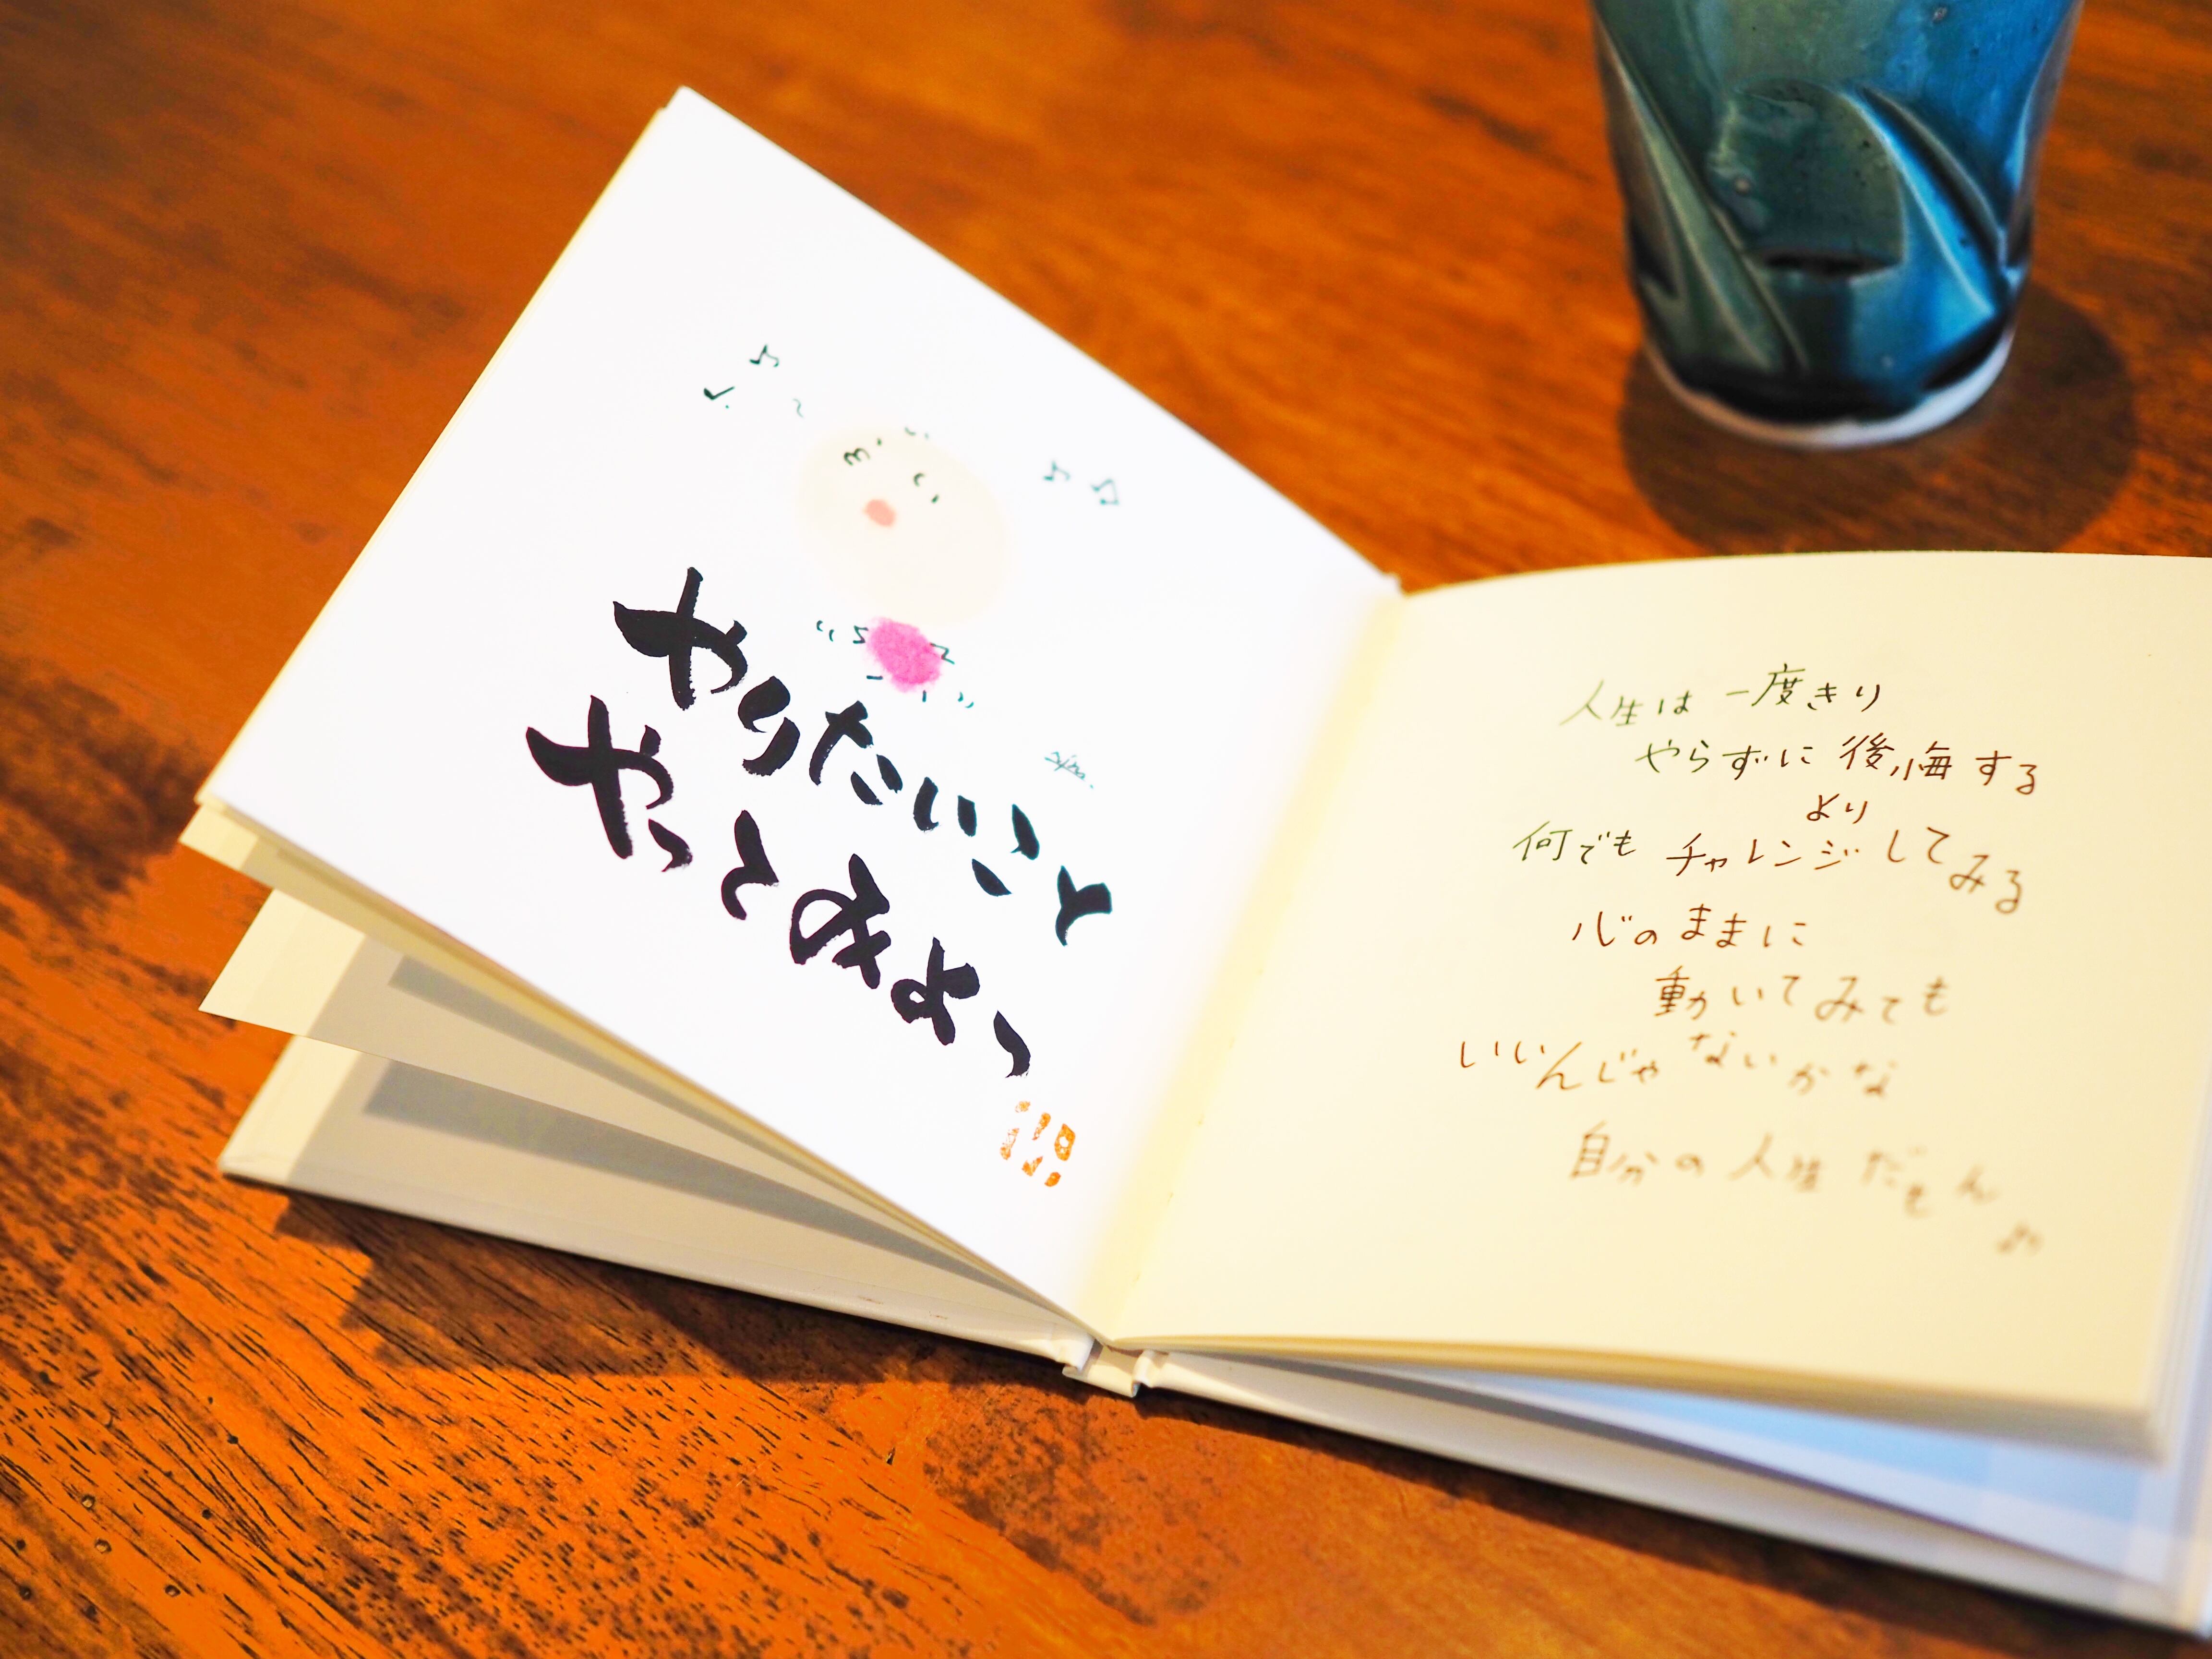 やりたいこと
やってみよっ
人生は一度きり
やらずに後悔する
より
何でもチャレンジしてみる
心のままに
動いてみても
いいんじゃないかな
自分の人生だもん